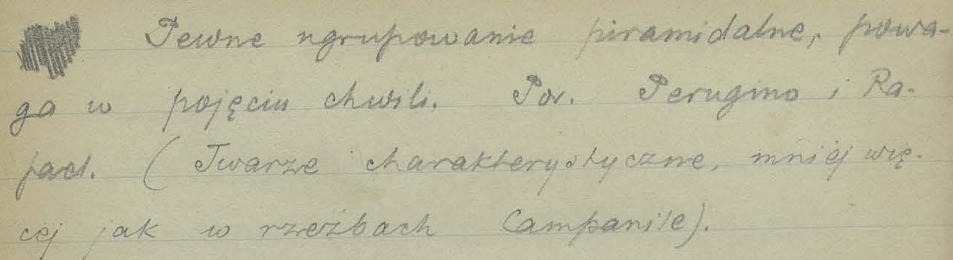 Pewne ugrupowanie piramidalne, powa-
ga w pojęciu chwili. Por. Perugino i Ra-
fael. (Twarze charakterystyczne, mniej wię-
cej jak w rzeźbach Campanile).